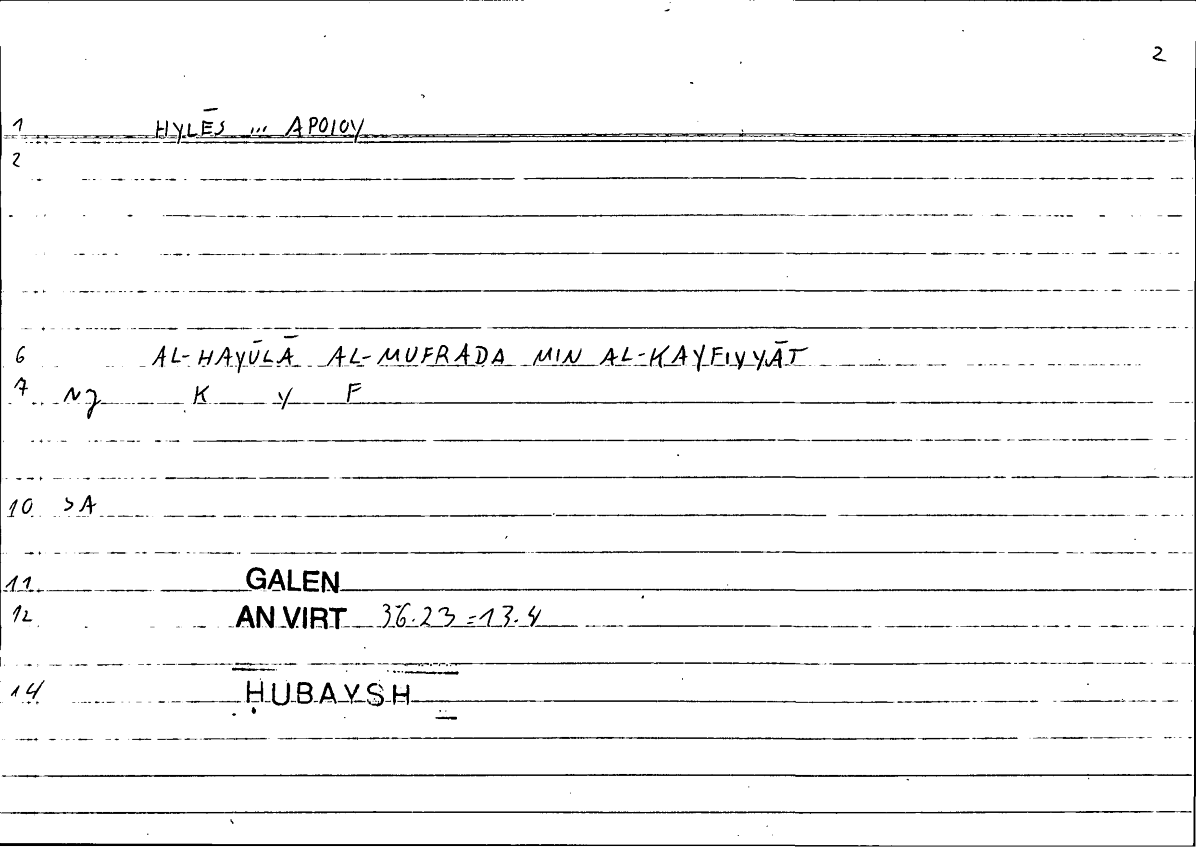 2
1 HYLĒS ... APOIOY
2
6 AL-HAYŪLĀ AL-MUFRADA MIN AL-KAYFIYYĀT
7 NJ K Y F
10 SA
11 GALEN
12 AN VIRT 36.23=13.4
14 ḤUBAYSH